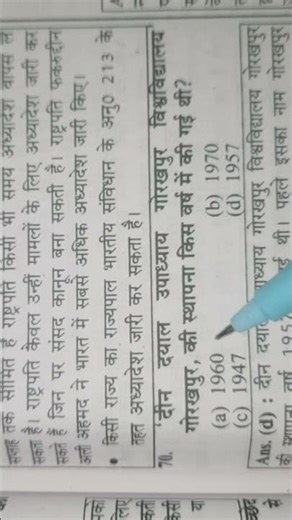 तक सीमित है राष्ट्रपति किसी भी समय अध्यादेश वापस ले
है। राष्ट्रपति केवल उन्हीं मामलों के लिए अध्यादेश जारी कर
सकते हैं जिन पर संसद कानून बना सकती है। राष्ट्रपति फकरुद्दीन
अली अहमद ने भारत में सबसे अधिक अध्यादेश जारी किए।
• किसी राज्य का राज्यपाल भारतीय संविधान के अनु0 213 के
तहत अध्यादेश जारी कर सकता है।
70. 'दीन दयाल उपाध्याय गोरखपुर विश्वविद्यालय
गोरखपुर, की स्थापना किस वर्ष में की गई थी?
(a) 1960 (b) 1970
(c) 1947 (d) 1957
Ans. (d) : दीन दयाल उपाध्याय गोरखपुर विश्वविद्यालय गोरखपुर
की स्थापना वर्ष 1957 थी। पहले इसका नाम गोरखपुर